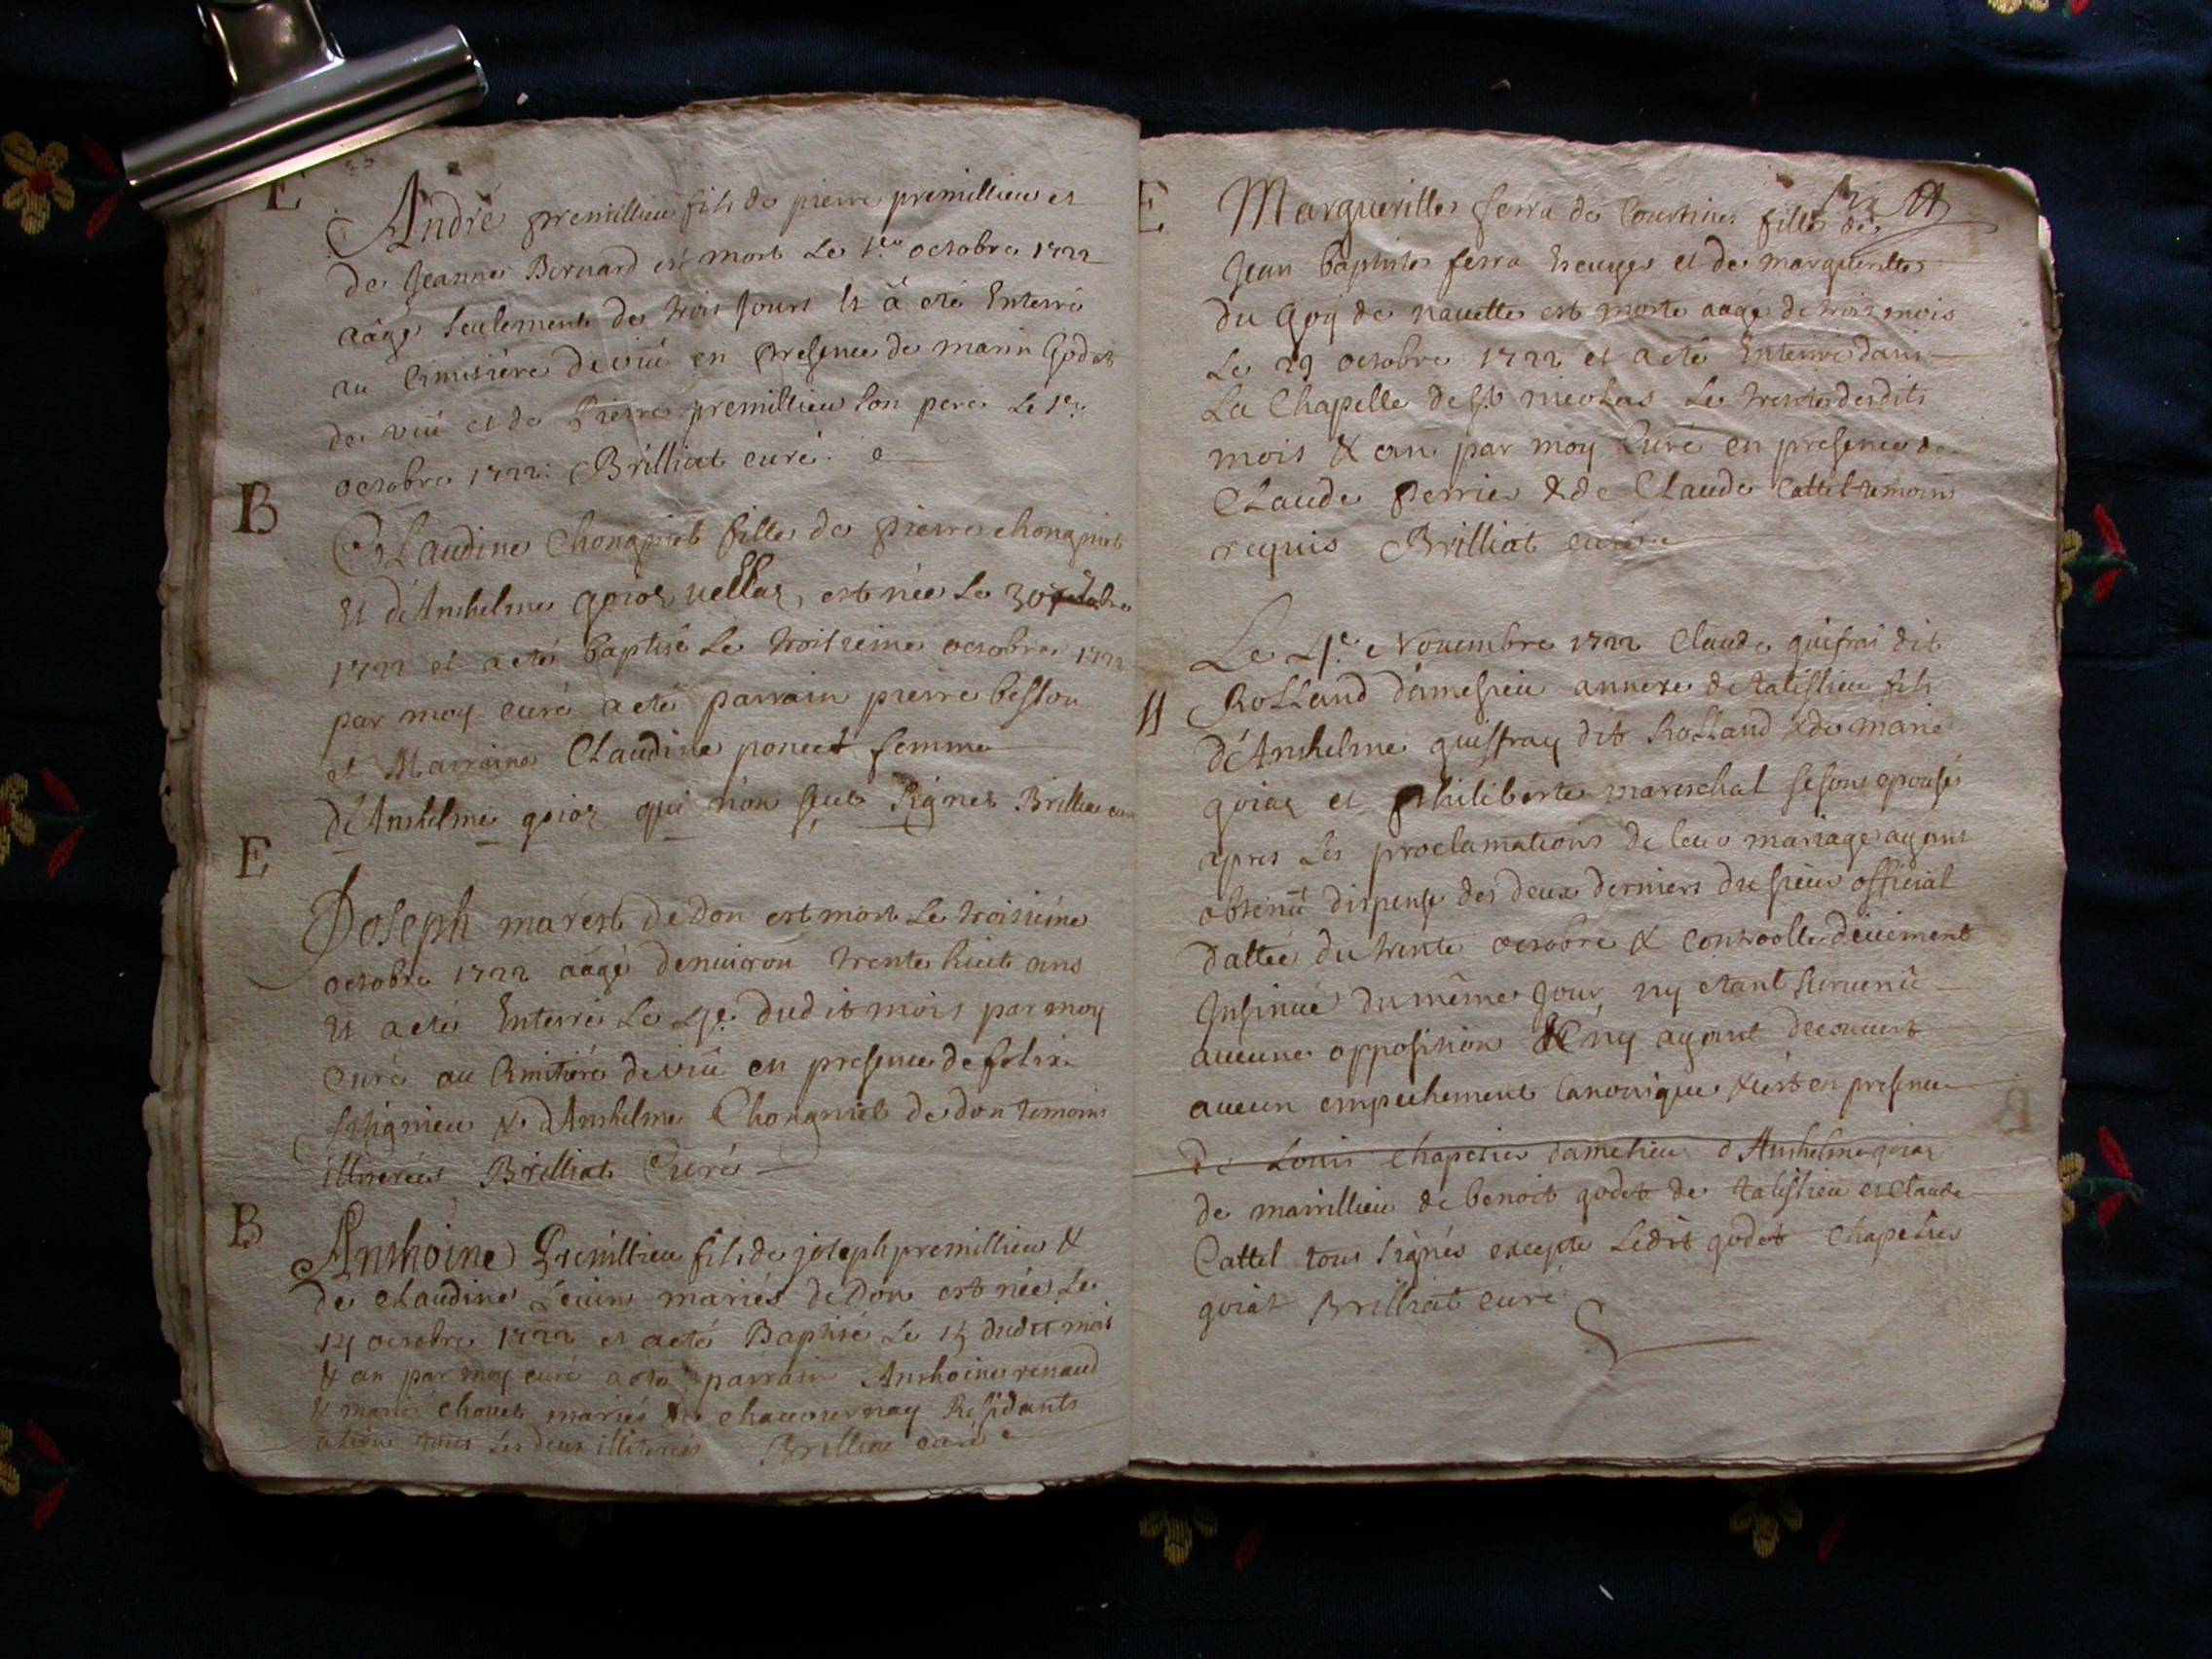 E
André premillieu fils de pierre premillieu et
de Jeanne Bernard est mort Le 1er octobre 1722
aâgé seulement de trois jours Et à eté Enterré
au Cimitière de viû en presence de marin Godet
de viû et de Pierre premillieu son pere Le 1er
octobre 1722: Brilliat curé.
B
Claudine Chongniet fille de pierre chongniet
Et d'Anthelme goioz, est née Le 30
1722 et a eté baptisé Le troisieme octobre 1722
par moy curé a eté parrain pierre besson
et Marraine Claudine poncet femme
d'Anthelme goioz qui n'on sçeu signer Brilliat
E
Joseph marest de Don est mort Le troisiéme
octobre 1722 aâgé d'enuiron trente huit ans
Et a eté Enterré Le 4e dudit mois par moy
Curé au Cimitiere de viû en presence de felix
& d'Anthelme Chongniet de don temoins
illiterées Brilliat Curé
B
Anthoine Premillieu fils de joseph premillieu &
de Claudine mariés de Don est née Le
14 octobre 1722 et a eté Baptisé Le 15 dudit mois
& an par moy curé a eté parrain Anthoine renaud
& marie chouet mariés de Residants
tous Les deux illiterées Brilliat curé
E
Margueritte ferra de Courtines fille de
Jean baptiste ferra Escuyer et de margueritte
du Goy de nauette est morte aagé de trois mois
Le 29 octobre 1722 et a eté Enterré dans
La Chapelle de St nicolas Le trente desdits
mois & an par moy Curé en presence de
Claude perrier & de Claude Cattel temoins
requis Brilliat curé
Le 4e Nouembre 1722 Claude guifrai dit
M Rolland d'amesieu annexe de talissieu fils
d'Anthelme guiffray dit Rolland & de marie
goiaz et philiberte mareschal se sont epousés
apres Les proclamations de leur mariage ayant
obtenu dispense des deux derniers du sieur official
dattée du trente octobre & controollé deüement
Insinué du même Jour ny etant suruenu
aucune opposition & ny ayant decouuert
aucun empechement Canonique & est en presence
de Louis chapetier d'amesieu d'Anthelme goiaz
de marrillieu de benoit godet de talissieu et Claude
Cattel tous signés excepté Ledit godet Chapetier
goiat Brilliat curé